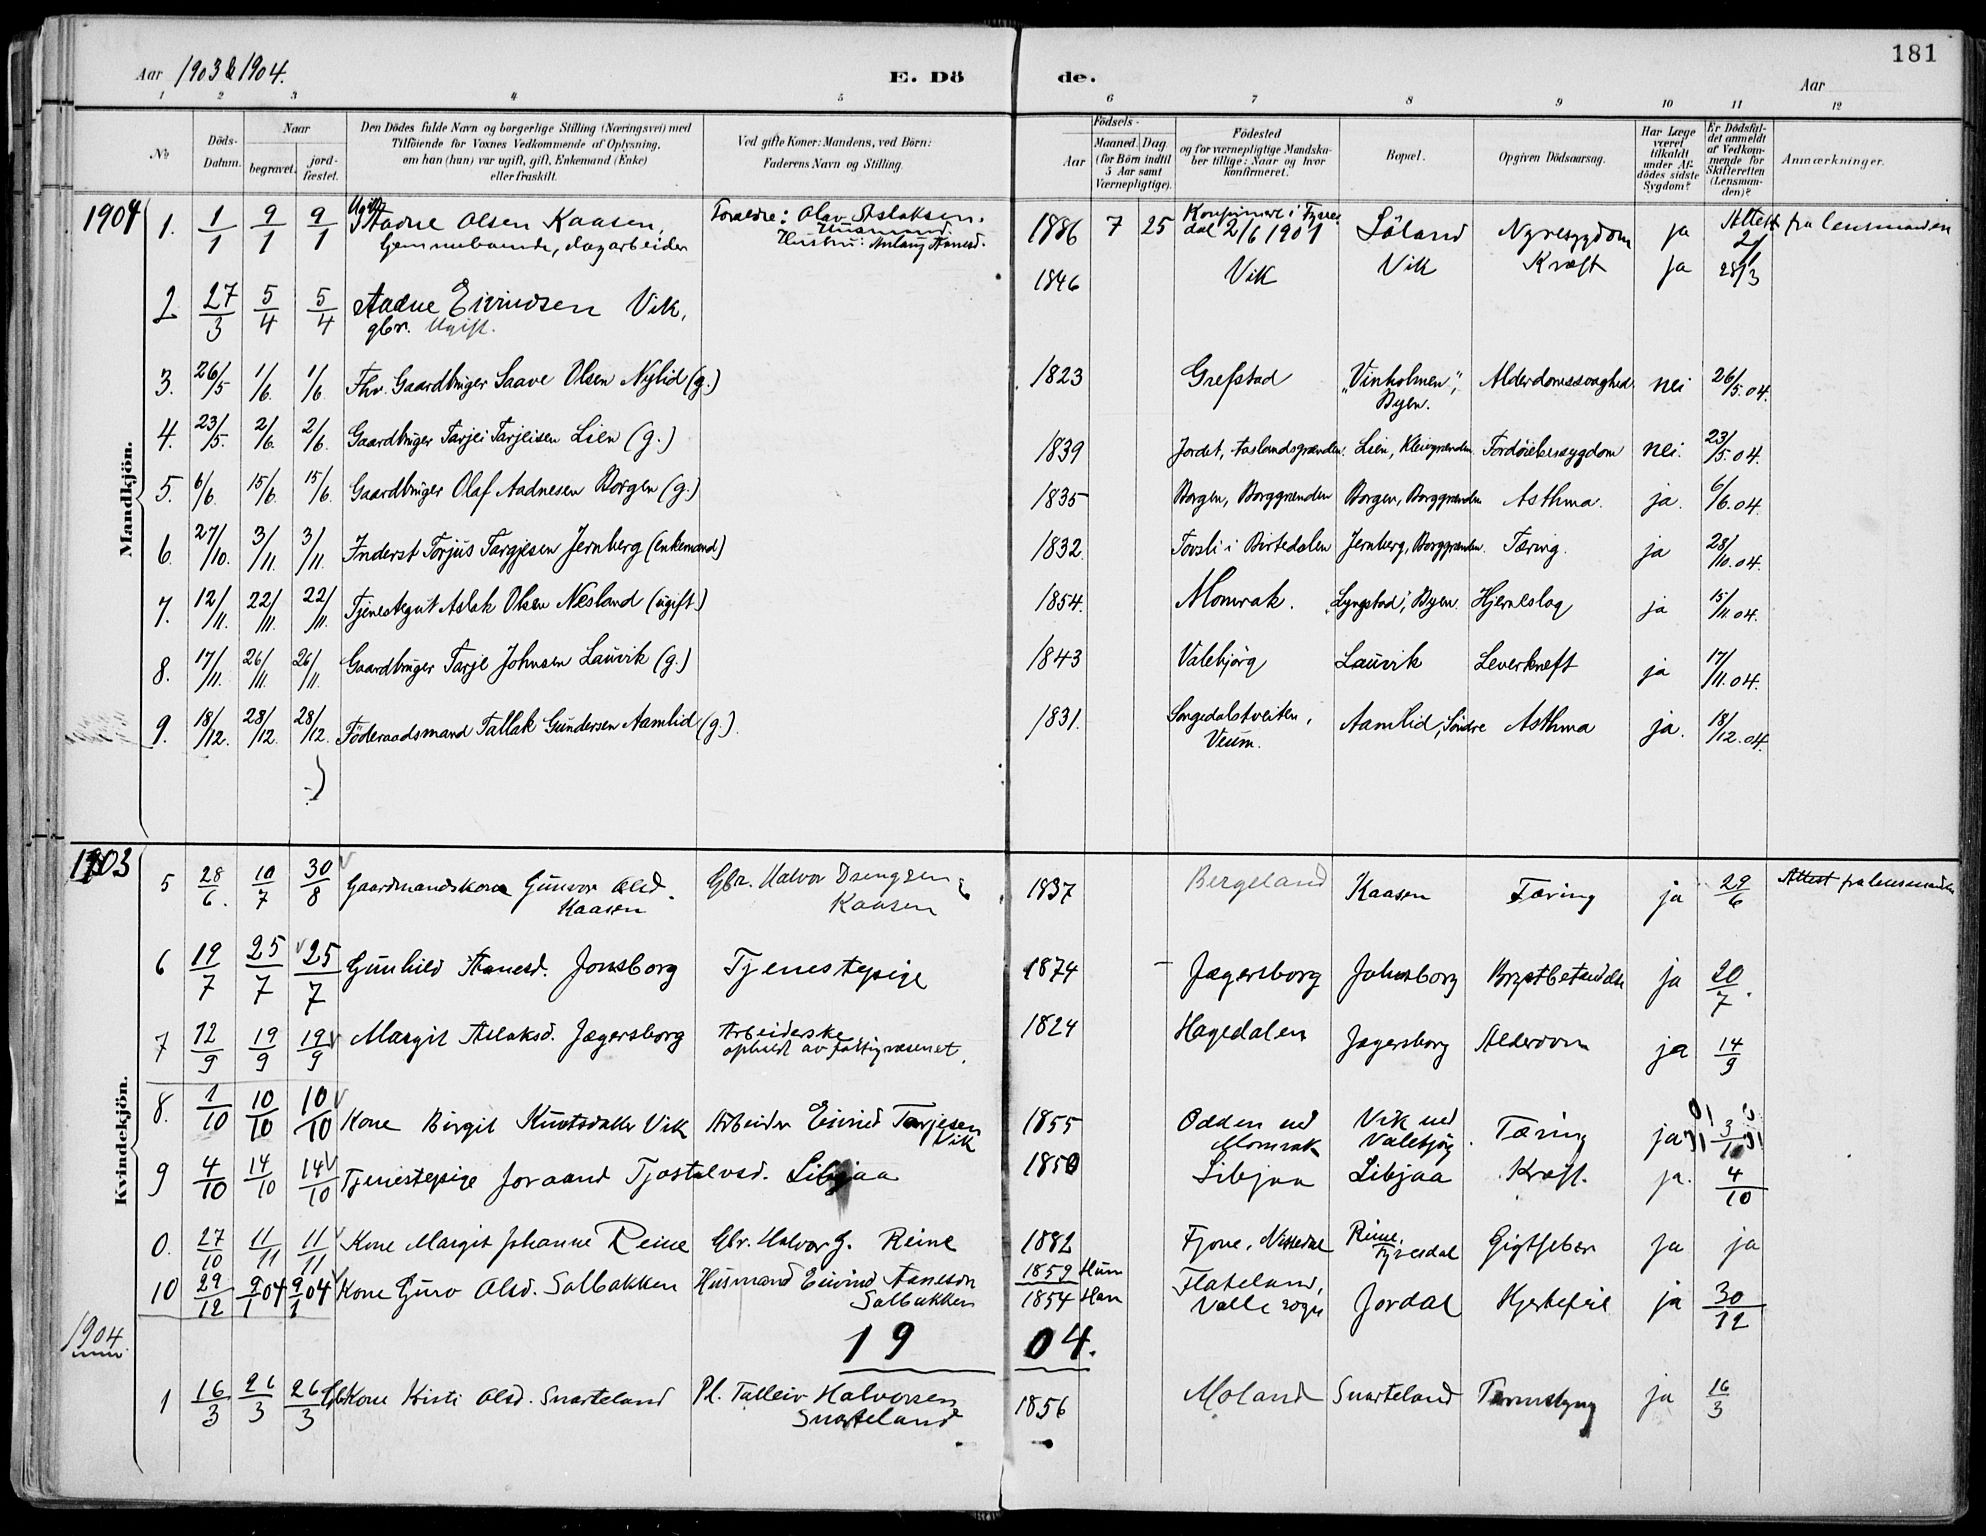 181
Aar 1903 & 1904. E. Dö de. Aar
1 2 3 4 5 6 7 8 9 10 11 12
No. Döds-Datum. Naar begravet. jord-fæstet. Den Dödes fulde Navn og borgerlige Stilling (Næringsvei) med Tilföiende for Voxnes Vedkommende af Oplysning, om han (hun) var ugift, gift, Enkemand (Enke) eller fraskilt. Ved gifte Koner: Mandens, ved Börn: Faderens Navn og Stilling. Födsels- Aar Maaned. Dag (for Börn indtil 5 Aar samt Værnepligtige). Födested og for værnepligtige Mandskaber tillige: Naar og hvor konfirmeret. Bopæl. Opgiven Dödsaarsag. Har Læge været tilkaldt under Afdödes sidste Sygdom? Er Dödsfaldet anmeldt af Vedkommende for Skifteretten (Lensmanden)? Anmærkninger.
Mandkjön.
1904 1. 1/1 9/1 9/1 Ugift Aadne Olsen Kaasen, Foreldre: Olav Aslaksen. 1886 7 25 Konfirmert i Fyresdal 2/6 1901 Löland Nyresygdom ja Attest 2/1 fra lensmanden
Hjemmeboende, dagarbeider Husmand
Hustru: Anlaug Aanesd.
2 27/3 5/4 5/4 Aadne Eivindsen Vik, 1846 Vik Vik Kræft ja 28/3
gbr. Ugift.
3. 26/5 1/6 1/6. Fhv. Gaardbruger Saave Olsen Nylid (g.) 1823 Grefstad "Vinholmen", Byen. Alderdomssvaghed. nei 26/5. 04.
4. 23/5. 2/6. 2/6. Gaardbruger Tarjei Tarjeisen Lien (g.) 1839 Jordet, Aaslandsgrænden. Lien, Kleivgrænden Fordöielsessygdom nei. 23/5. 04.
5. 6/6. 15/6. 15/6. Gaardbruger Olaf Aadnesen Borgen (g.) 1835 Borgen, Borggrænden Borgen, Borggrænden Asthma. ja. 6/6. 04.
6. 27/10. 3/11. 3/11. Inderst Torjus Targjesen Jernberg (enkemand) 1832. Tovsli i Birtedalen Jernberg, Borggrænden. Tæring. ja 28/10. 04.
7. 12/11. 22/11. 22/11. Tjenestegut Aslak Olsen Nesland (ugift.) 1854. Momrak. "Lyngstad", Byen. Hjerneslag ja 15/11. 04.
8. 17/11. 26/11. 26/11. Gaardbruger Tarje Johnsen Lauvik (g.) 1843 Valebjörg Lauvik Leverkræft ja 17/11. 04.
9. 18/12. 28/12. 28/12. Föderaadsmand Tallak Gundersen Aamlid (g.) 1831. Songedalstveiten, Veum. Aamlid, Söndre Asthma ja. 18/12. 04.
Kvindekjön.
1903 5 28/6. 10/7 30/8 Gaardmandskone Gunvor Olsd. Kaasen Gbr. Halvor Kaasen 1837 Bergeland Kaasen Tæring ja 29/6 Attest fra lensmanden
6 19/7 25/7 25/7 Gunhild Aanesd. Jonsborg Tjenestepige 1874 Jægersborg Johnsborg Brystbetændelse ja 20/7.
7 12/9 19/9 19/9 Margit Aslaksd. Jægersborg Arbeiderske 1824 Hagedalen Jægersborg Alderdom ja 14/9
opholdt av fattigvæsenet.
8. 1/10 10/10 10/10 Kone Birgit Knutsdatter Vik Arbeider Eivind Tarjesen Vik 1855 Odden ud Momrak Vik ud Valebjög. Tæring ja 3/10
9 4/10 14/10 14/10 Tjenestepige Joraand Tjostolvsd. Libjaa 1850 Libjaa Libjaa Kræft. ja. 4/10
0. 27/10 11/11 11/11 Kone Margit Johanne Reine Gbr. Halvor G. Reine 1882 Fjone, Nissedal Reine, Fyresdal Gigtfeber ja ja
10 29/12 9/1 04 9/1 04 Kone Guro Olsd. Solbakken Husmand Eivind Aanesön Solbakken 1859 Hun 1854 Han Flateland, Valle sogn Jordal Hjertefeil ja 30/12
1904
1904.
1 16/3 26/3 26/3 Kone Kirsti Olsd. Snarteland Pl. Talleiv Halvorsen Snarteland 1856 Moland Snarteland ja 16/3